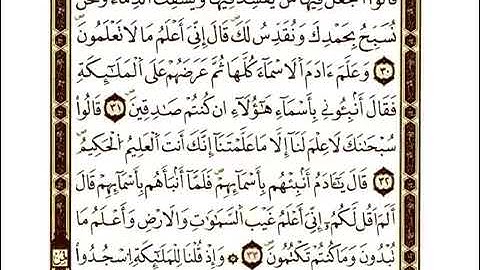 قَالُوٓا۟ أَتَجْعَلُ فِيهَا مَنْ يُفْسِدُ فِيهَا وَيَسْفِكُ الدِّمَآءَ وَنَحْنُ
نُسَبِّحُ بِحَمْدِكَ وَنُقَدِّسُ لَكَ قَالَ إِنِّىٓ أَعْلَمُ مَا لَا تَعْلَمُونَ
٣٠ وَعَلَّمَ ءَادَمَ الْاَسْمَآءَ كُلَّهَا ثُمَّ عَرَضَهُمْ عَلَى الْمَلَٰٓئِكَةِ
فَقَالَ أَنْبِـُٔونِى بِأَسْمَآءِ هَٰٓؤُلَآءِ ان كُنْتُمْ صَٰدِقِينَ ٣١ قَالُوا
سُبْحَٰنَكَ لَا عِلْمَ لَنَآ إِلَّا مَا عَلَّمْتَنَآ إِنَّكَ أَنتَ الْعَلِيمُ الْحَكِيمُ
٣٢ قَالَ يَٰٓـَٔادَمُ أَنۢبِئْهُم بِأَسْمَآئِهِمْ فَلَمَّآ أَنۢبَأَهُم بِأَسْمَآئِهِمْ قَالَ
أَلَمْ أَقُل لَّكُمُۥٓ إِنِّىٓ أَعْلَمُ غَيْبَ السَّمَٰوَٰتِ وَالَارْضِ وَأَعْلَمُ مَا
تُبْدُونَ وَمَا كُنتُمْ تَكْتُمُونَ ٣٣ وَإِذْ قُلْنَا لِلْمَلَٰٓئِكَةِ اِسْجُدُوا۟